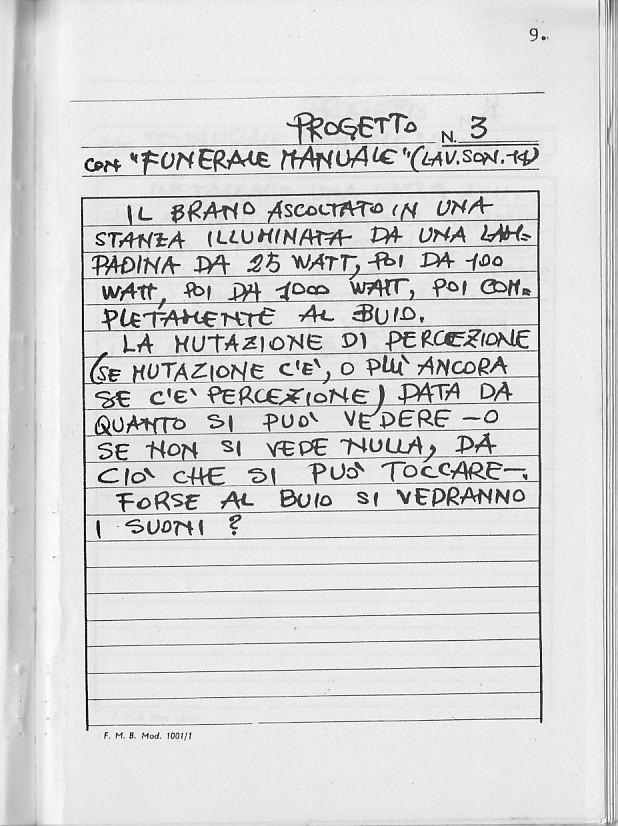 9.
PROGETTO N. 3
CON "FUNERALE MANUALE" (LAV. SON. 14)
IL BRANO ASCOLTATO IN UNA
STANZA ILLUMINATA DA UNA LAM=
PADINA DA 25 WATT, POI DA 100
WATT, POI DA 1000 WATT, POI COM=
PLETAMENTE AL BUIO.
LA MUTAZIONE DI PERCEZIONE
(SE MUTAZIONE C'E', O PIU' ANCORA
SE C'E' PERCEZIONE) DATA DA
QUANTO SI PUO' VEDERE – O
SE NON SI VEDE NULLA, DA
CIO' CHE SI PUO' TOCCARE –.
FORSE AL BUIO SI VEDRANNO
I SUONI ?
F. M. B. Mod. 1001/1